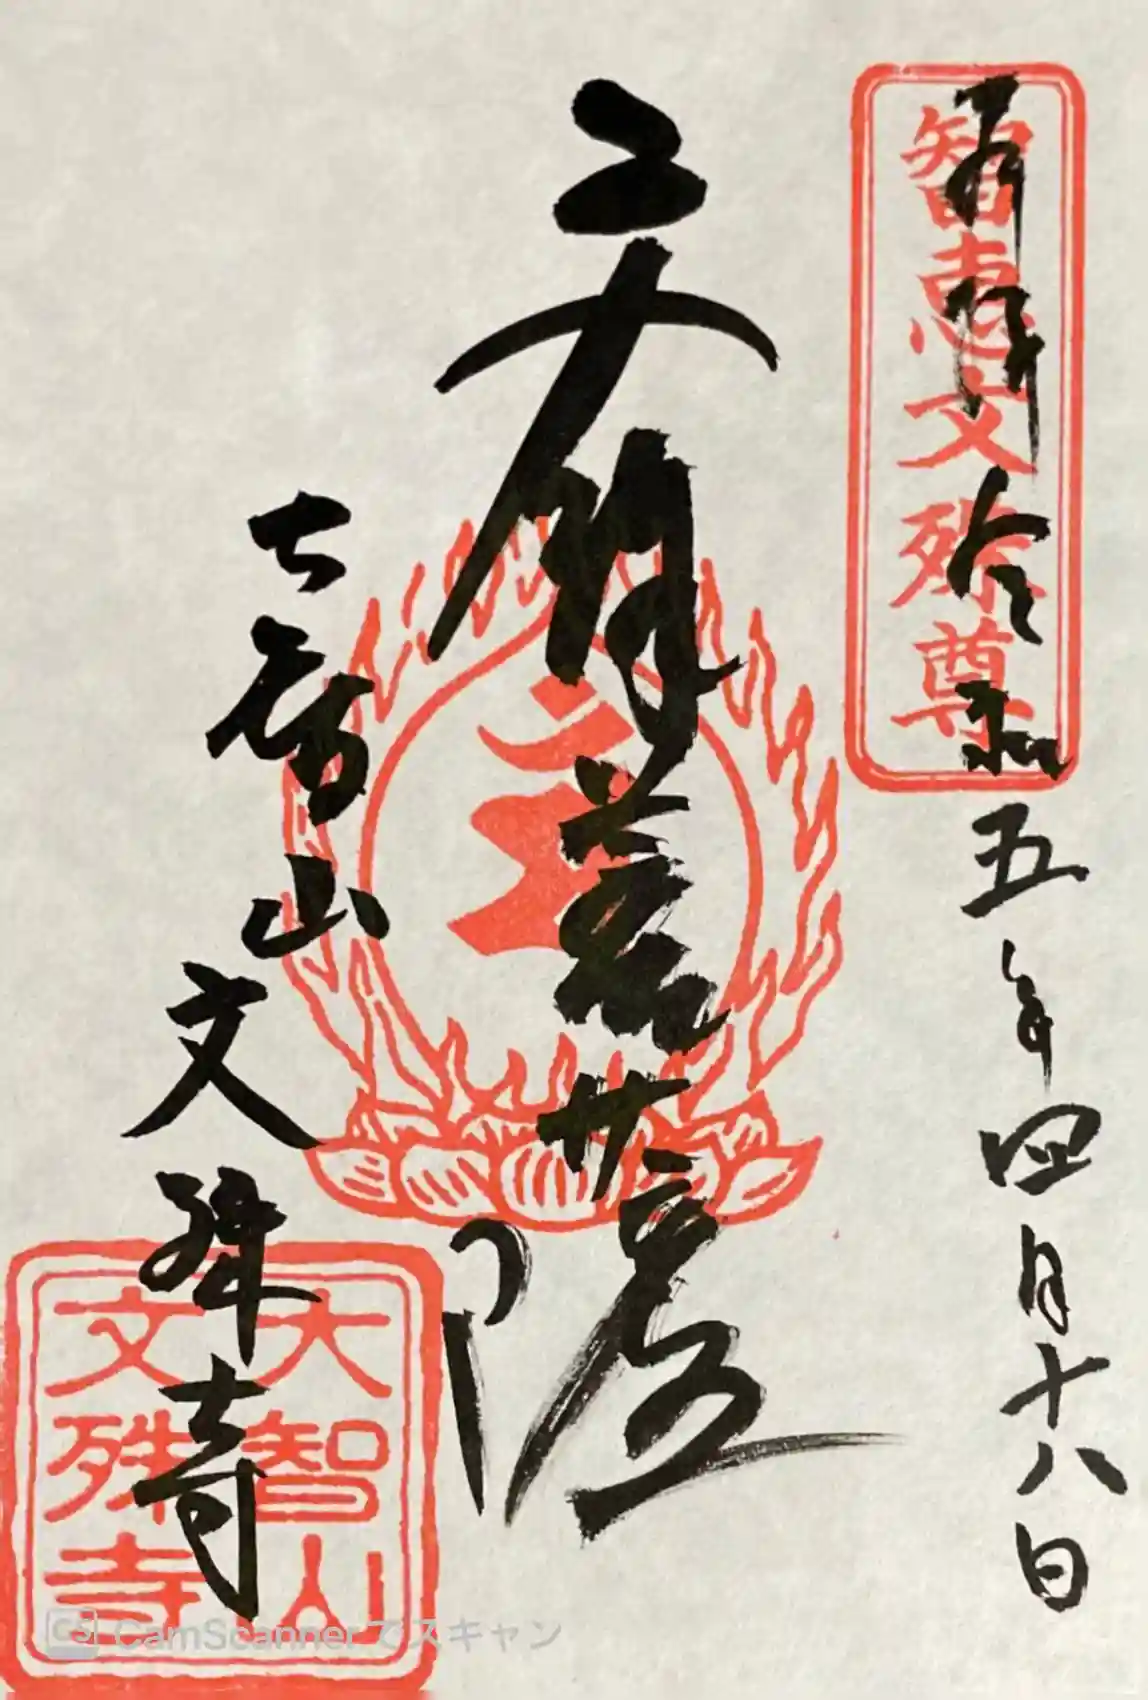 奉拝 令和五年四月十八日
智恵文殊尊
文殊菩薩
大智山 文殊寺
大智山
文殊寺
CS CamScannerでスキャン